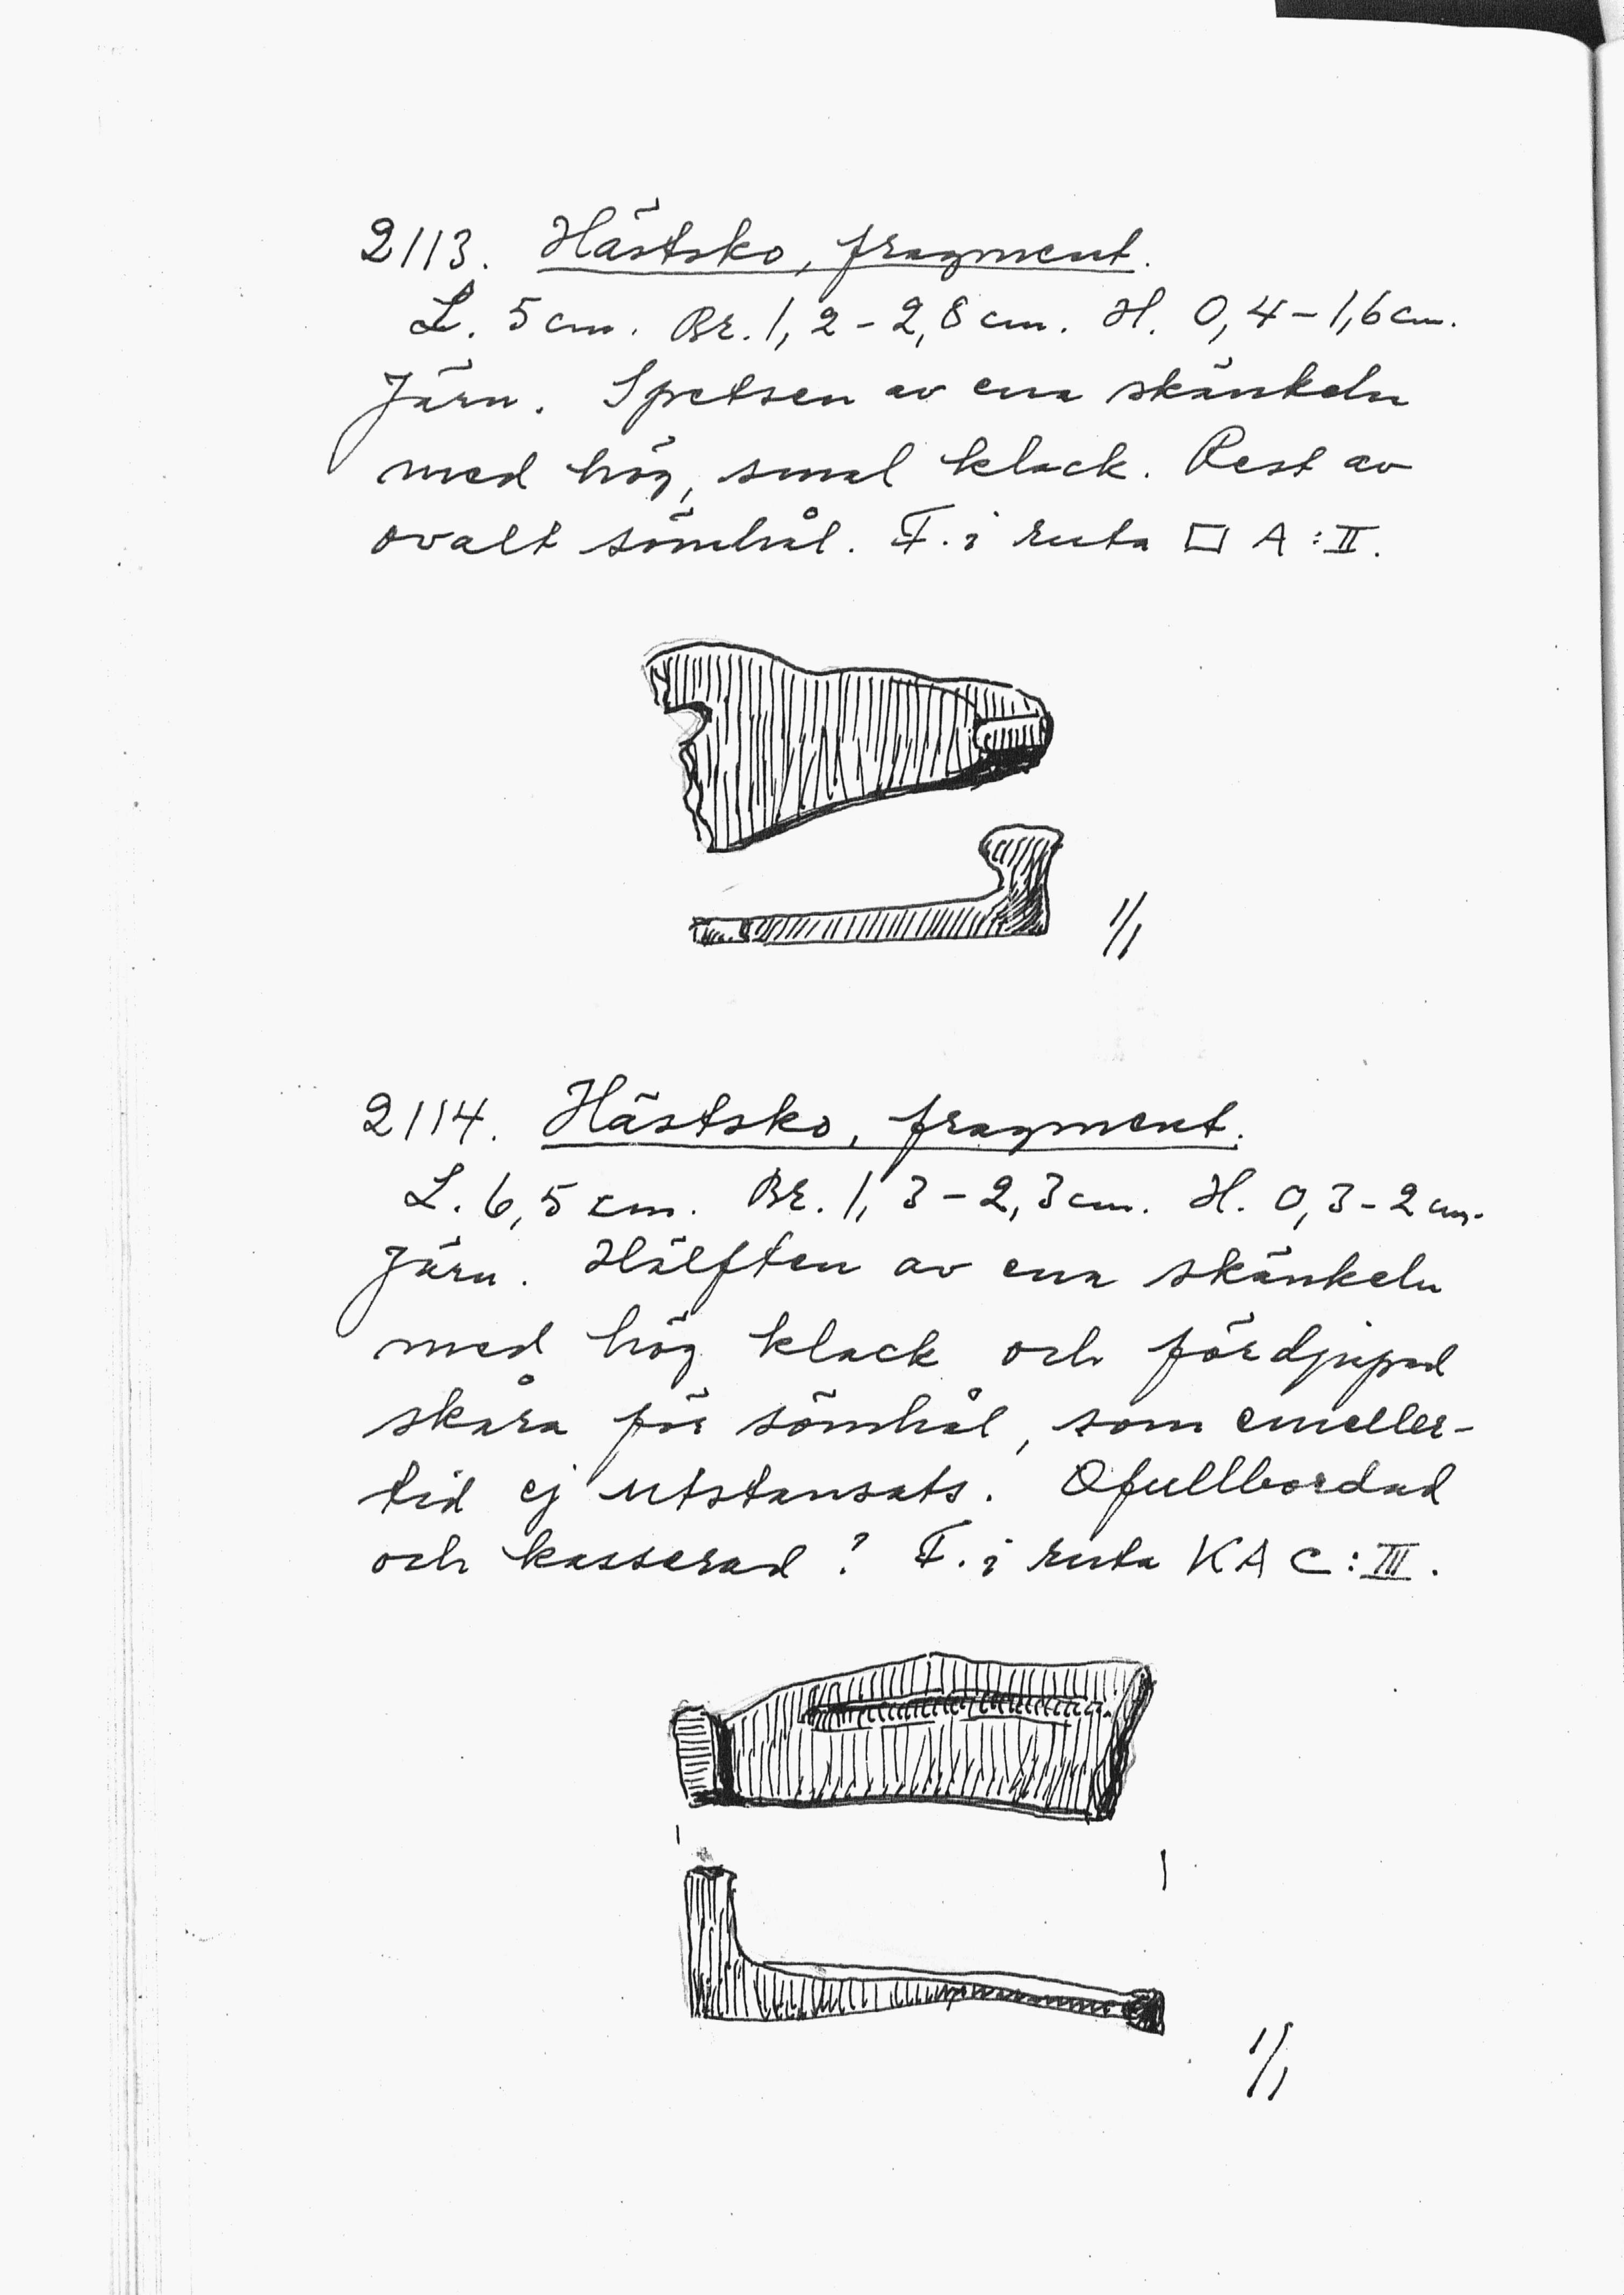 2113. Hästsko, fragment.
L. 5 cm. Br. 1,2-2,8 cm. H. 0,4-1,6 cm.
Järn. Spetsen av ena skänkeln
med hög, smal klack. Rest av
ovalt sömhål. F. i ruta □ A:II.
1/1
2114. Hästsko, fragment.
L. 6,5 cm. Br. 1,3-2,3 cm. H. 0,3-2 cm.
Järn. Hälften av ena skänkeln
med hög klack och fördjupad
skåra för sömhål, som emeller-
tid ej utstansats. Ofullbordad
och kasserad? F. i ruta KA C:III.
1/1